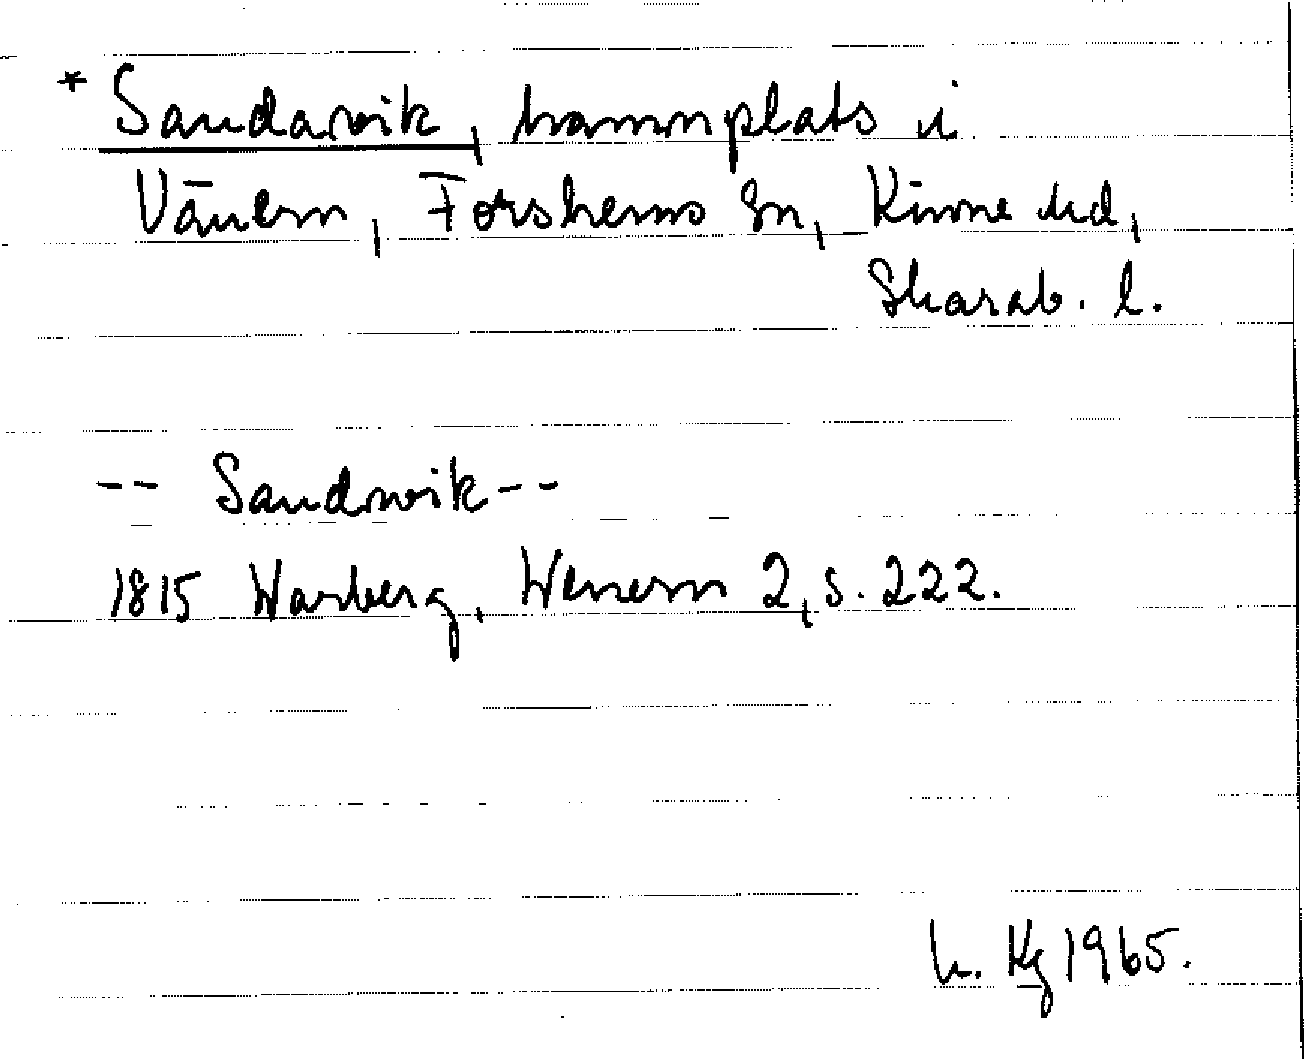 * Sandavik, hamnplats i
Vänern, Forshems sn, Kinne hd,
Skarab. l.
-- Sandwik --
1815 Warberg, Wenern 2, s. 222.
h. Kg 1965.